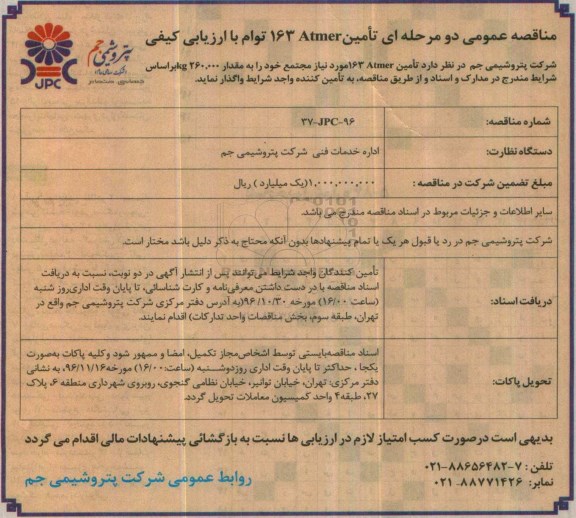 مناقصه عمومی دو مرحله ای تأمین Atmer ۱۶۳ توام با ارزیابی کیفی
شرکت پتروشیمی جم در نظر دارد تأمین Atmer ۱۶۳ مورد نیاز مجتمع خود را به مقدار ۲۶۰,۰۰۰ kg براساس
شرایط مندرج در مدارک و اسناد و از طریق مناقصه، به تأمین کننده واجد شرایط واگذار نماید.
پتروشیمی جم
JPC
شماره مناقصه:
۳۷-JPC-۹۶
دستگاه نظارت:
اداره خدمات فنی شرکت پتروشیمی جم
مبلغ تضمین شرکت در مناقصه :
۱,۰۰۰,۰۰۰,۰۰۰(یک میلیارد ) ریال
سایر اطلاعات و جزئیات مربوط در اسناد مناقصه مندرج می باشد.
شرکت پتروشیمی جم در رد یا قبول هر یک یا تمام پیشنهادها بدون آنکه محتاج به ذکر دلیل باشد مختار است.
دریافت اسناد:
تأمین کنندگان واجد شرایط می‌توانند پس از انتشار آگهی در دو نوبت، نسبت به دریافت
اسناد مناقصه با در دست داشتن معرفی‌نامه و کارت شناسائی، تا پایان وقت اداری‌روز شنبه
(ساعت ۱۶/۰۰) مورخه ۹۶/۱۰/۳۰(به آدرس دفتر مرکزی شرکت پتروشیمی جم واقع در
تهران، طبقه سوم، بخش مناقصات واحد تدارکات) اقدام نمایند.
تحویل پاکات:
اسناد مناقصه‌بایستی توسط اشخاص‌مجاز تکمیل، امضا و ممهور شود و کلیه پاکات به‌صورت
یکجا ، حداکثر تا پایان وقت اداری روزدوشنبه (ساعت:۱۶/۰۰) مورخه۹۶/۱۱/۱۶، به نشانی
دفتر مرکزی: تهران، خیابان توانیر، خیابان نظامی گنجوی، روبروی شهرداری منطقه ۶، پلاک
۲۷، طبقه۴ واحد کمیسیون معاملات تحویل گردد.
بدیهی است درصورت کسب امتیاز لازم در ارزیابی ها نسبت به بازگشائی پیشنهادات مالی اقدام می گردد
تلفن : ۷-۸۸۶۵۶۴۸۲-۰۲۱
نمابر: ۸۸۷۷۱۴۲۶-۰۲۱
روابط عمومی شرکت پتروشیمی جم